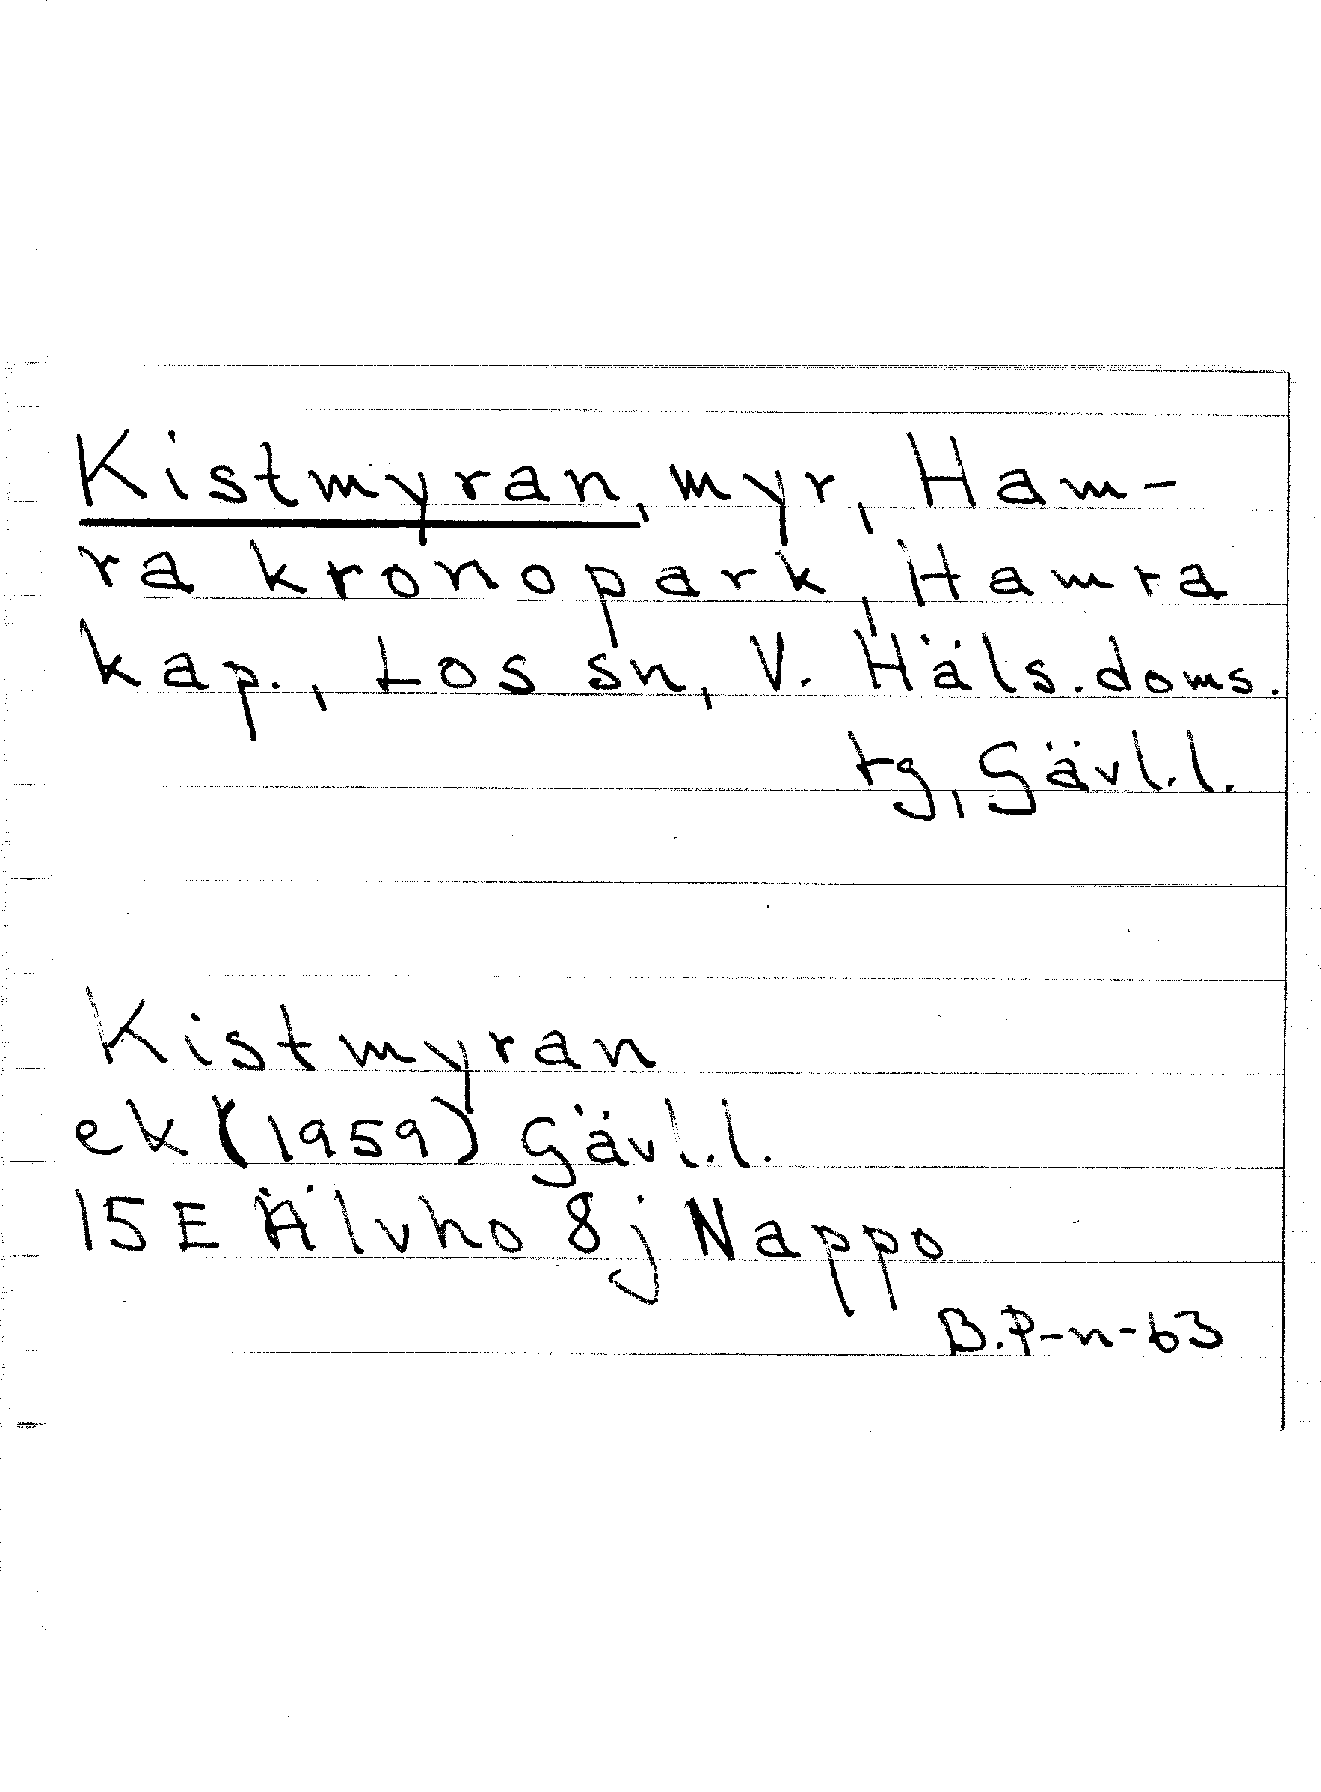 Kistmyran, myr, Ham-
ra kronopark, Hamra
kap., Los sn, V. Häls.doms.
tg, Gävl.l.
Kistmyran
ek (1959) Gävl.l.
15E Älvho 8j Nappo
B.P-n-63